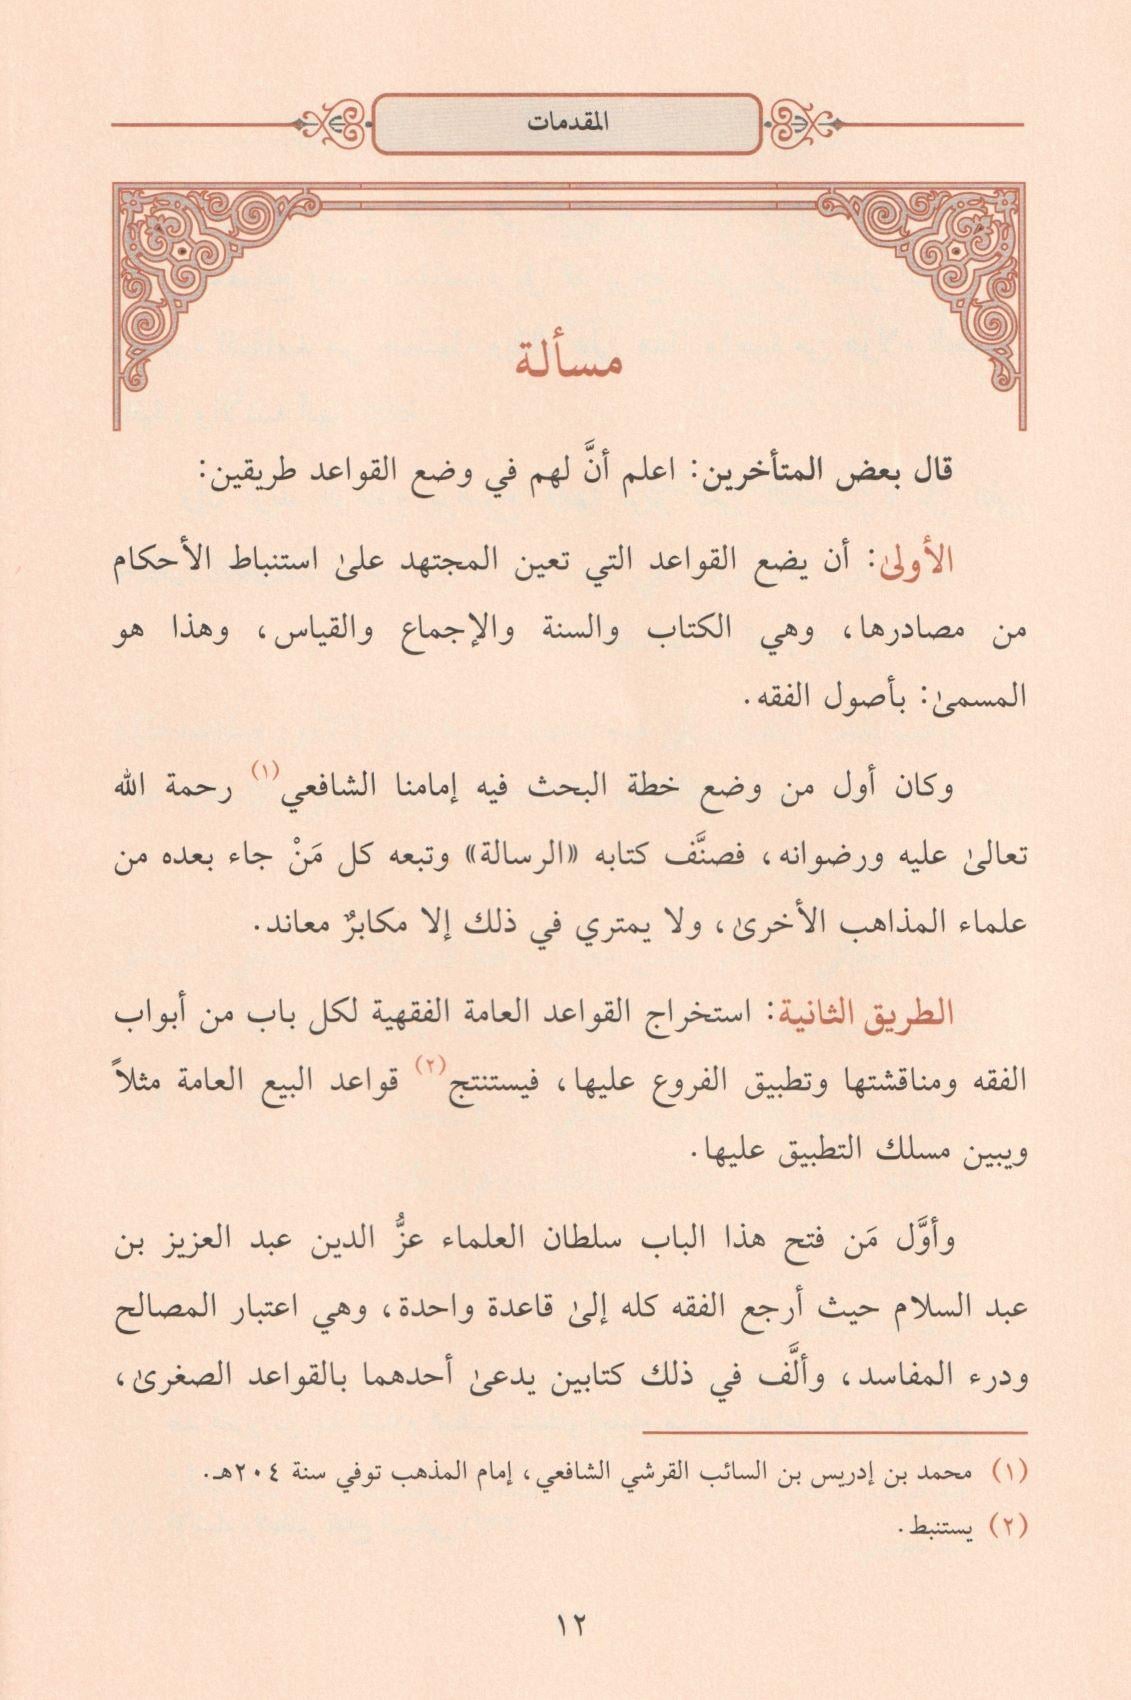 المقدمات
مسألة
قال بعض المتأخرين: اعلم أنَّ لهم في وضع القواعد طريقين:
الأولىٰ: أن يضع القواعد التي تعين المجتهد علىٰ استنباط الأحكام
من مصادرها، وهي الكتاب والسنة والإجماع والقياس، وهذا هو
المسمىٰ: بأصول الفقه.
وكان أول من وضع خطة البحث فيه إمامنا الشافعي(١) رحمة الله
تعالىٰ عليه ورضوانه، فصنَّف كتابه «الرسالة» وتبعه كل مَنْ جاء بعده من
علماء المذاهب الأخرىٰ، ولا يمتري في ذلك إلا مكابرٌ معاند.
الطريق الثانية: استخراج القواعد العامة الفقهية لكل باب من أبواب
الفقه ومناقشتها وتطبيق الفروع عليها، فيستنتج(٢) قواعد البيع العامة مثلاً
ويبين مسلك التطبيق عليها.
وأوَّل مَن فتح هذا الباب سلطان العلماء عزُّ الدين عبد العزيز بن
عبد السلام حيث أرجع الفقه كله إلىٰ قاعدة واحدة، وهي اعتبار المصالح
ودرء المفاسد، وألَّف في ذلك كتابين يدعىٰ أحدهما بالقواعد الصغرىٰ،
(١) محمد بن إدريس بن السائب القرشي الشافعي، إمام المذهب توفي سنة ٢٠٤هـ.
(٢) يستنبط.
١٢